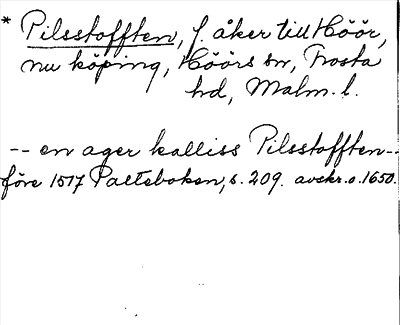 * Pilsstofften, f. åker till Höör,
nu köping, Höörs sn, Frosta
hd, Malm. l.
-- en ager kalliss Pilsstofften --
före 1517 Palteboken, s. 209. avskr. o. 1650.